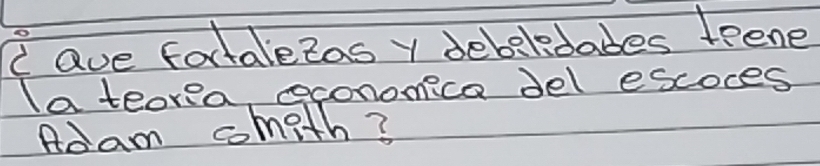 ¿ que fortalezas y debilidades tiene
la teoria economica del escoces
Adam smith?